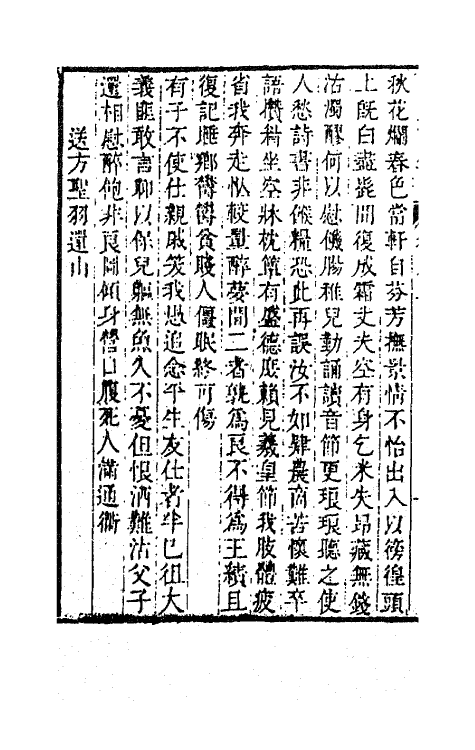 秋花爛春色當軒自芬芳撫景情不怡出入以徬徨頭
上既白盡髭間復成霜丈夫空有身乞米失昂藏無錢
沽濁醪何以慰饑腸稚兒勤誦讀音節更琅琅聽之使
人愁詩書非餱糧恐此再誤汝不如肆農商苦懷難卒
語攢精坐空牀枕簟有盛德庶賴見羲皇節我肢體疲
省我奔走忙較量醉夢間二者孰爲良不得爲王績且
復記睡鄉薄薄貧賤人僵眠終可傷
有子不使仕親戚笑我愚追念平生友仕者半已徂大
義匪敢言聊以保兒軀無魚久不憂但恨酒難沽父子
還相慰醉飽非良圖傾身營口腹死人滿通衢
送方聖羽還山